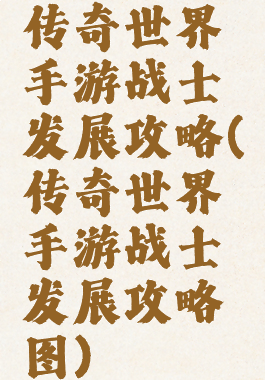 传奇世界
手游战士
发展攻略(
传奇世界
手游战士
发展攻略
图)